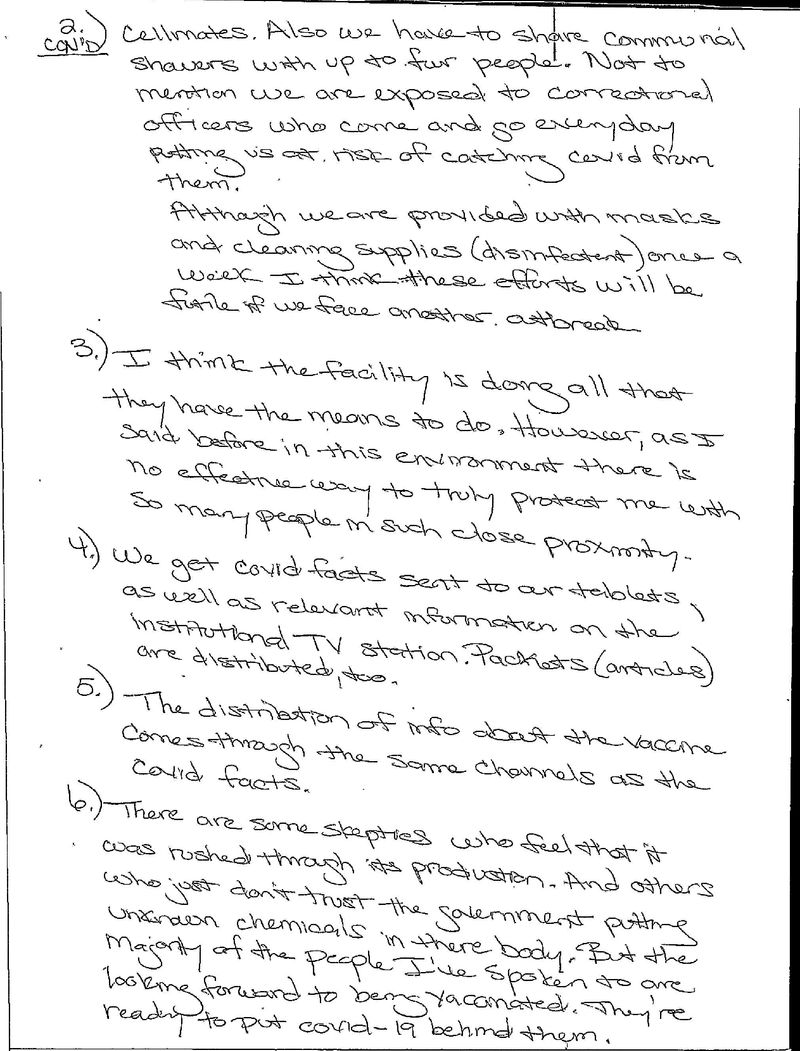 2.) cellmates. Also we have to share communal
CON'D showers with up to four people. Not to
mention we are exposed to correctional
officers who come and go everyday
putting us at risk of catching covid from
them.
Although we are provided with masks
and cleaning supplies (disinfectent) once a
week I think these efforts will be
futile if we face another outbreak
3.) I think the facility is doing all that
they have the means to do. However, as I
said before in this environment there is
no effective way to truly protect me with
so many people in such close proximity.
4.) We get covid facts sent to our tablets,
as well as relevant information on the
institutional TV station. Packets (articles)
are distributed, too.
5.) The distribution of info about the vaccine
comes through the same channels as the
covid facts.
6.) There are some skeptics who feel that it
was rushed through its production. And others
who just don't trust the government putting
unknown chemicals in there body. But the
majority of the people I've spoken to are
looking forward to being vaccinated. They're
ready to put covid-19 behind them.